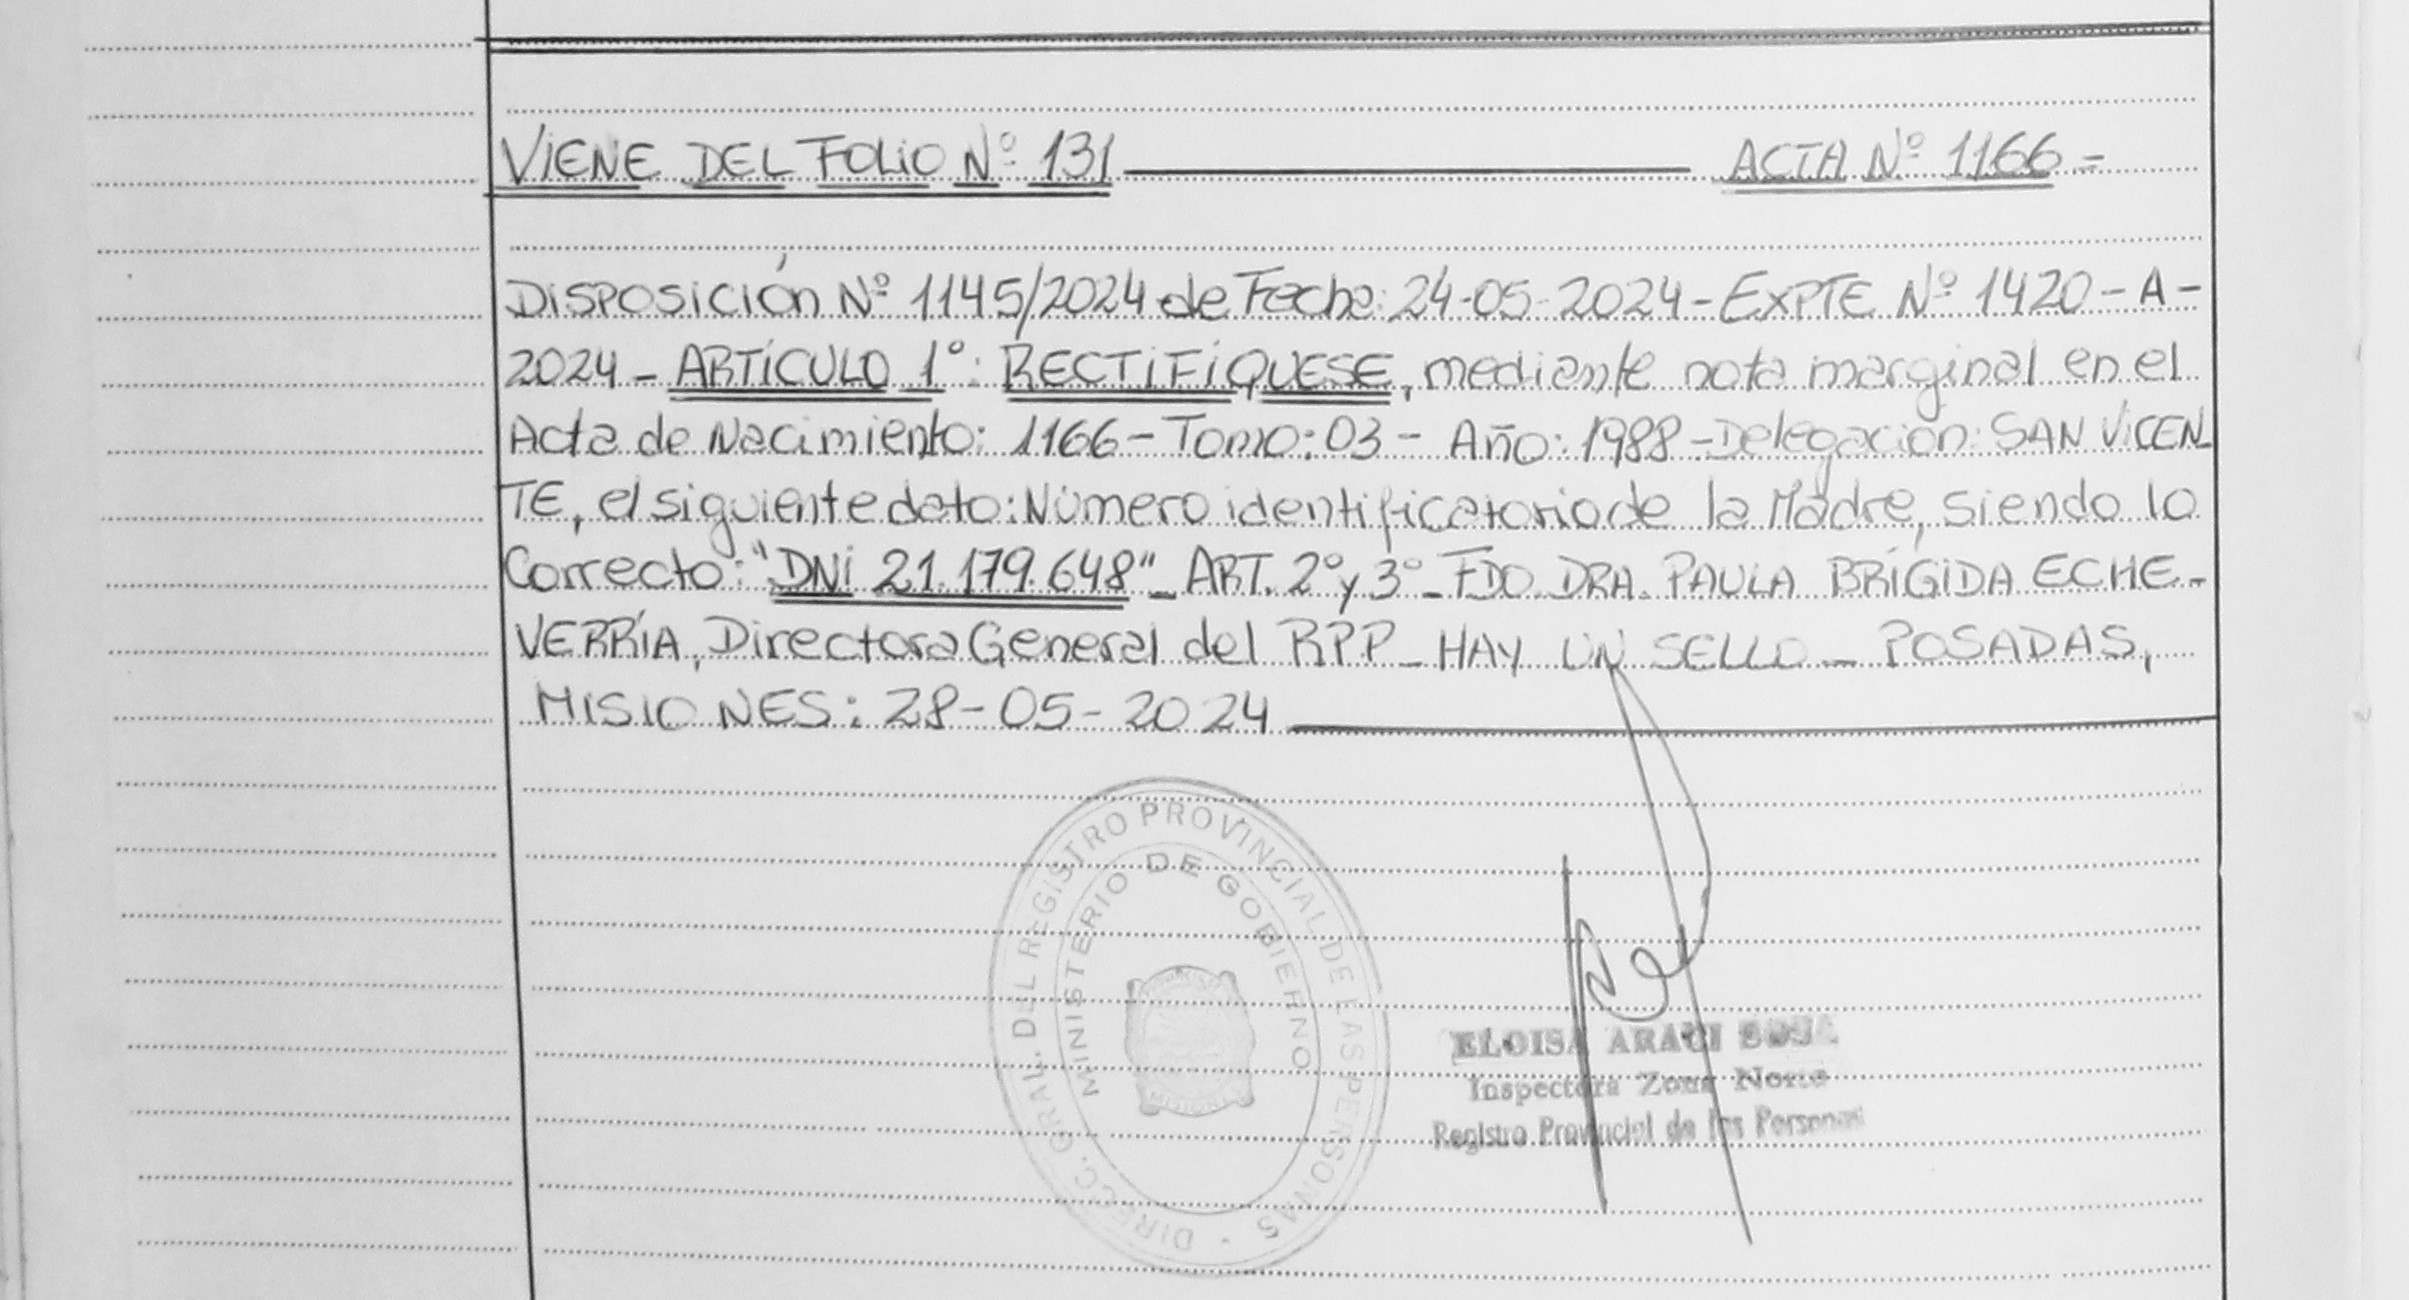 VIENE DEL FOLIO Nº 131 ACTA Nº 1166 =
DISPOSICIÓN Nº 1145/2024 de Fecha: 24-05-2024 - EXPTE Nº 1420 - A -
2024 - ARTÍCULO 1°: RECTIFÍQUESE, mediante nota marginal en el
Acta de Nacimiento: 1166 - Tomo: 03 - Año: 1988 - Delegación: SAN VICEN-
TE, el siguiente dato: Número identificatorio de la Madre, siendo lo
Correcto: "DNI 21.179.648" - ART. 2° y 3° - FDO DRA. PAULA BRÍGIDA ECHE-
VERRÍA, Directora General del RPP - HAY UN SELLO - POSADAS,
MISIONES: 28-05-2024
DIRECC. GRAL. DEL REGISTRO PROVINCIAL DE LAS PERSONAS
MINISTERIO DE GOBIERNO
MISIONES
ELOISA ARACI SOSA
Inspectora Zona Norte
Registro Provincial de las Personas